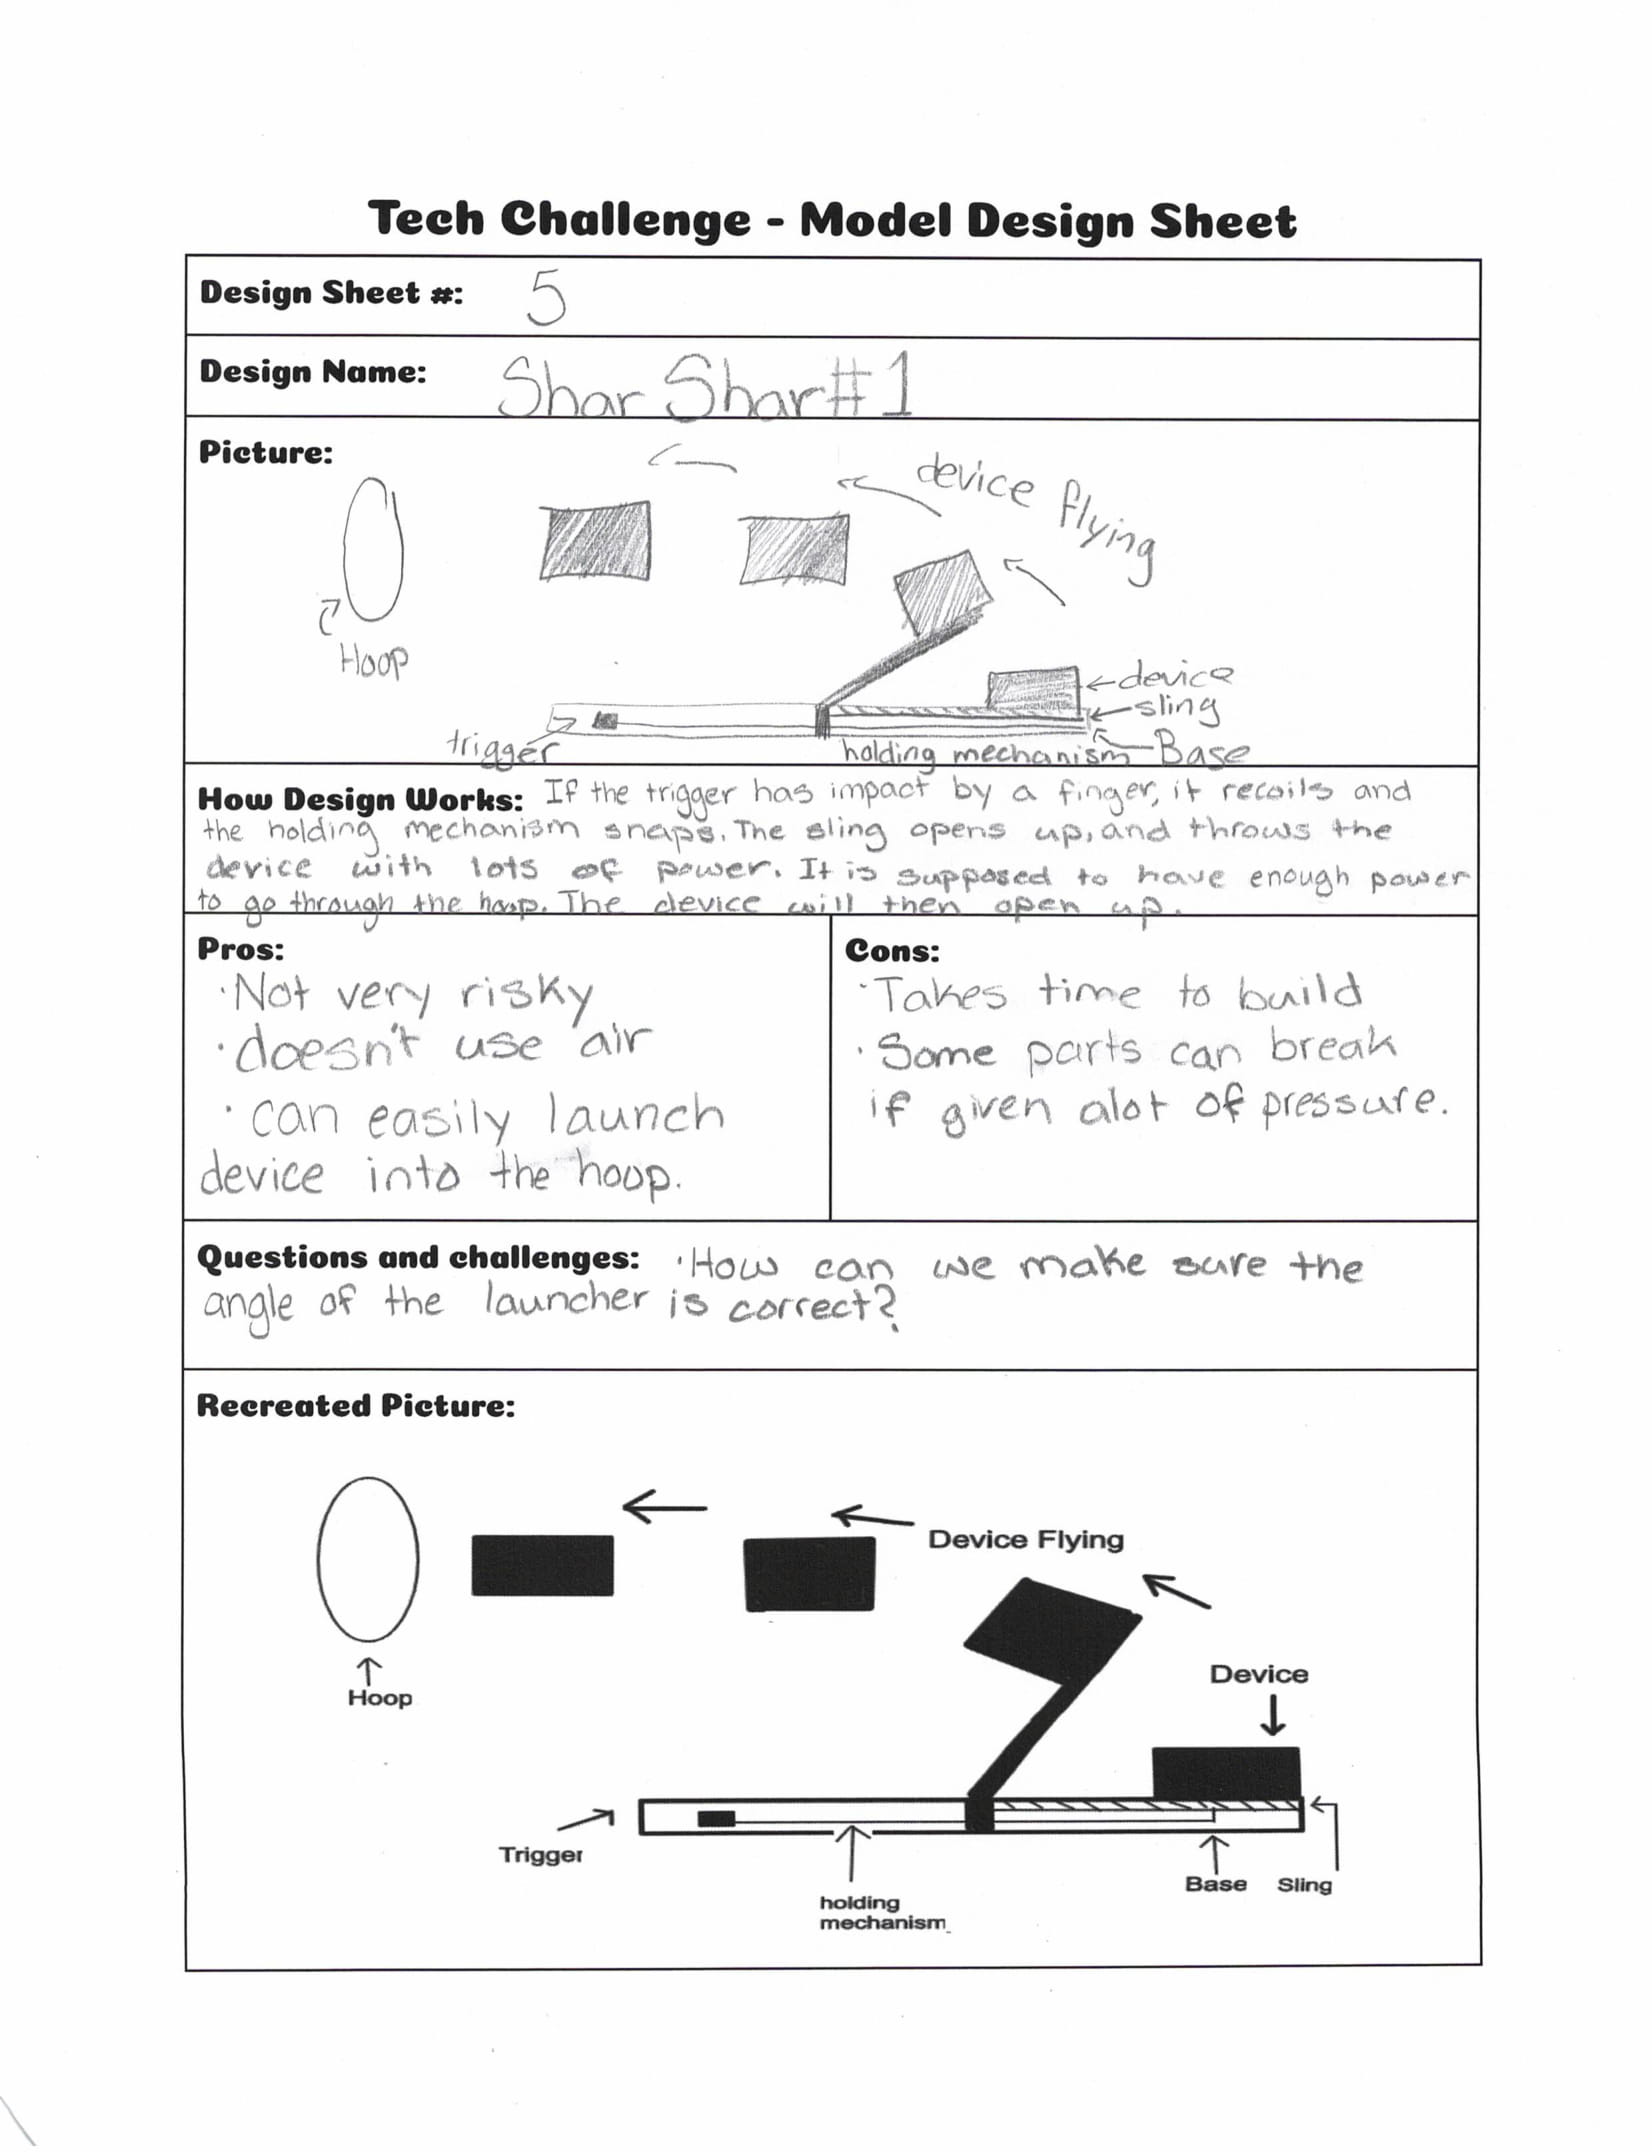 Tech Challenge - Model Design Sheet
Design Sheet #: 5
Design Name: Shar Shar #1
Picture:
device flying
Hoop
device
sling
trigger
holding mechanism
Base
How Design Works: If the trigger has impact by a finger, it recoils and
the holding mechanism snaps. The sling opens up, and throws the
device with lots of power. It is supposed to have enough power
to go through the hoop. The device will then open up.
Pros:
· Not very risky
· doesn't use air
· can easily launch
device into the hoop.
Cons:
· Takes time to build
· Some parts can break
if given alot of pressure.
Questions and challenges: · How can we make sure the
angle of the launcher is correct?
Recreated Picture:
Device Flying
Hoop
Device
Trigger
holding
mechanism
Base
Sling